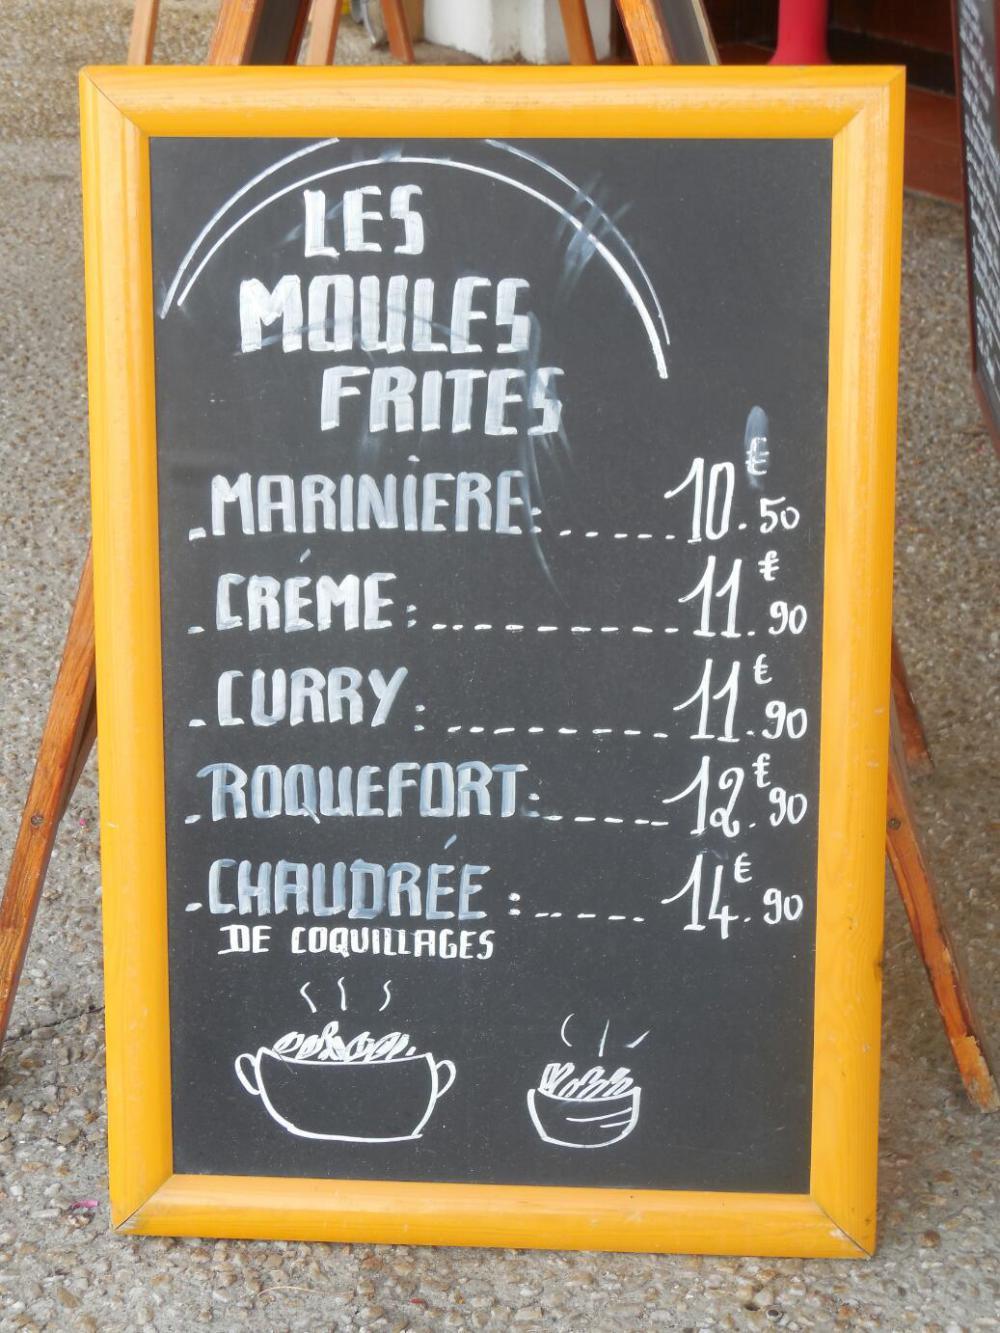 LES
MOULES
FRITES
-MARINIERE:......10€.50
-CRÉME:.........11€.90
-CURRY:.........11€.90
-ROQUEFORT:.....12€.90
-CHAUDRÉE:......14€.90
DE COQUILLAGES